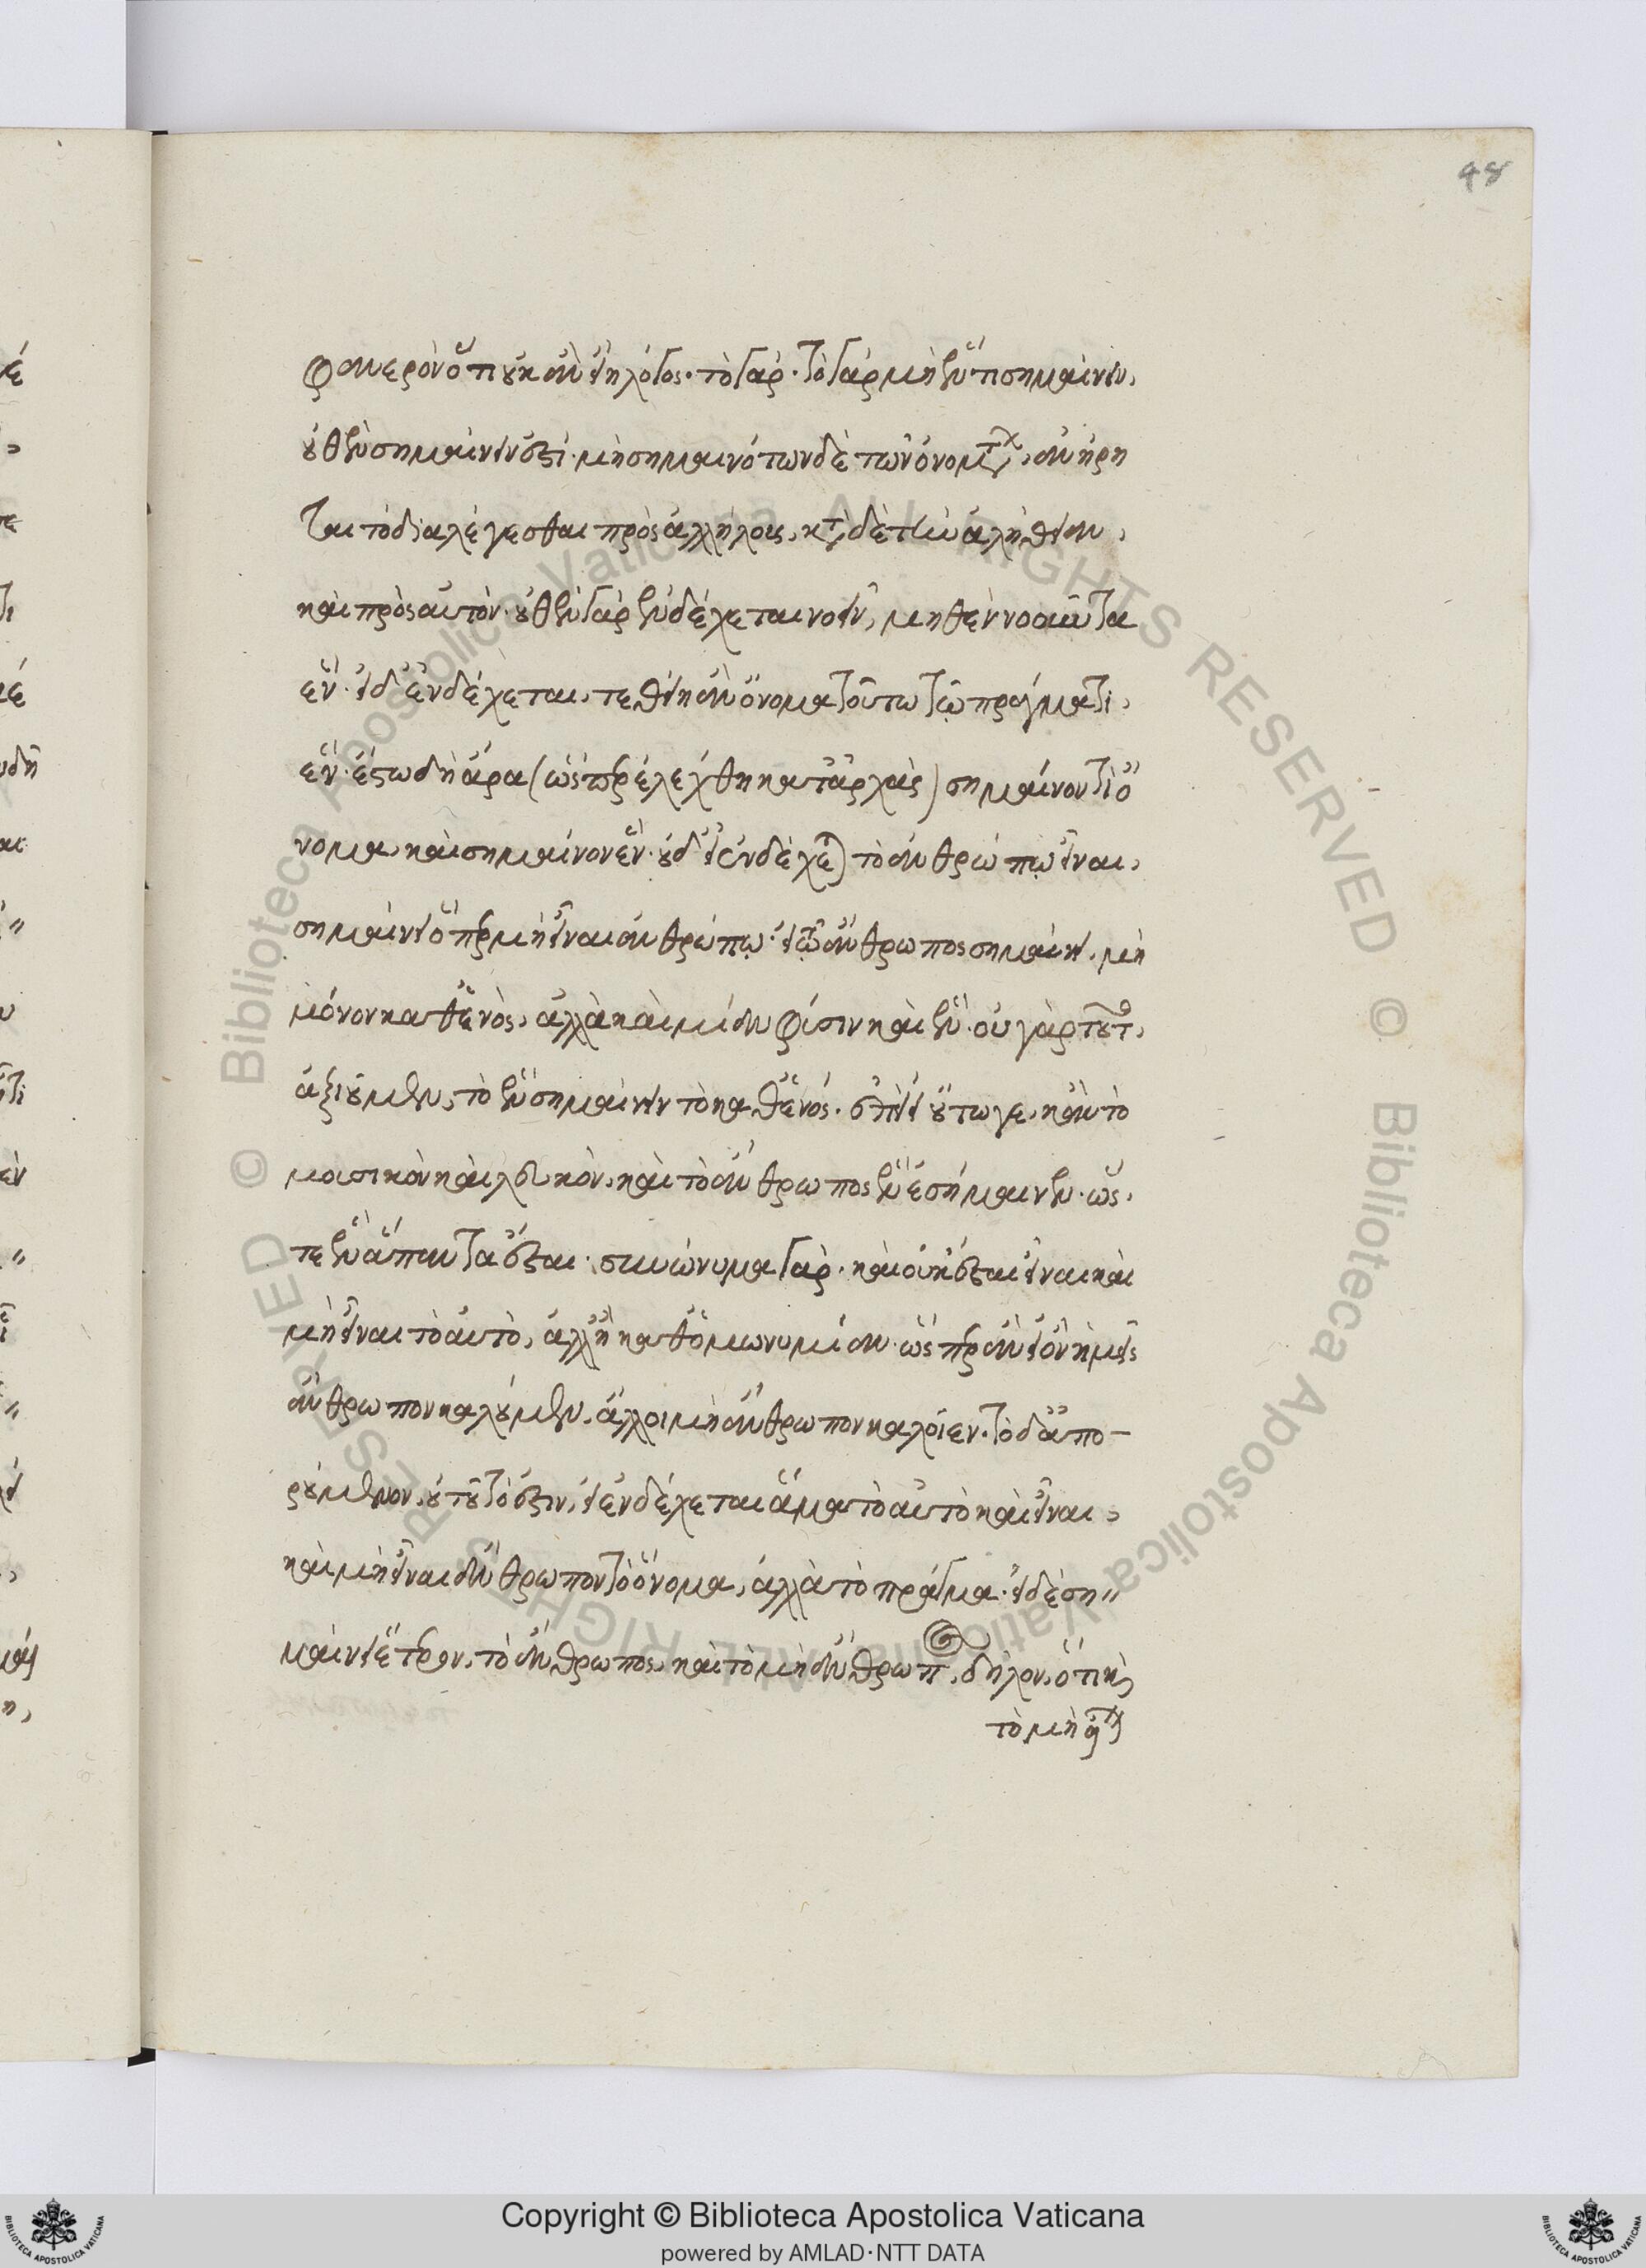 48
φανερὸν ὅτι οὐκ ἂν εἴη λόγος· τὸ γὰρ· τὸ γὰρ μὴ ἕν τι σημαίνειν,
οὐθὲν σημαίνειν ἐστί· μὴ σημαινόντων δὲ τῶν ὀνομάτων, ἀνήρη
ται τὸ διαλέγεσθαι πρὸς ἀλλήλους, κατὰ δὲ τὴν ἀλήθειαν,
καὶ πρὸς αὐτόν· οὐθὲν γὰρ ἐνδέχεται νοεῖν, μηθὲν νοοῦντα
ἕν· εἰ δ' ἐνδέχεται, τεθείη ἂν ὄνομα τούτω τῷ πράγματι
ἕν· ἔστω δὴ ἄρα (ὥσπερ ἐλέχθη κατ' ἀρχὰς) σημαῖνόν τι ὄ
νομα, καὶ σημαῖνον ἕν· οὐ δεῖ ἐνδέχεται τὸ ἀνθρώπῳ εἶναι,
σημαίνει ὅπερ μὴ εἶναι ἀνθρώπῳ· εἰ τῷ ἄνθρωπος σημαίνει, μὴ
μόνον καθ' ἑνὸς, ἀλλὰ καὶ μίαν φύσιν καὶ ἕν· οὐ γὰρ τοῦτο,
ἀξιοῦμεν, τὸ ἓν σημαίνειν τὸ καθ' ἑνός· ἐπεὶ οὕτω γε, κἂν τὸ
μουσικὸν καὶ λευκὸν, καὶ τὸ ἄνθρωπος ἓν ἐσήμαινεν· ὥς,
τε ἓν ἅπαντα ἔσται· συνώνυμα γὰρ· καὶ οὐκ ἔσται εἶναι καὶ
μὴ εἶναι τὸ αὐτὸ, ἀλλ' ἢ καθ' ὁμωνυμίαν· ὥσπερ ἂν εἰ ὃν ἡμεῖς
ἄνθρωπον καλοῦμεν, ἄλλοι μὴ ἄνθρωπον καλοῖεν· τὸ δ' ἀπο-
ρούμενον, οὐ τοῦτό ἐστιν, εἰ ἐνδέχεται ἅμα τὸ αὐτὸ καὶ εἶναι,
καὶ μὴ εἶναι ἄνθρωπον τὸ ὄνομα, ἀλλὰ τὸ πρᾶγμα· εἰ δὲ ση〃
μαίνει ἕτερον, τὸ ἄνθρωπος, καὶ τὸ μὴ ἄνθρωπος, δῆλον, ὅτι καὶ
τὸ μὴ
Copyright © Biblioteca Apostolica Vaticana
powered by AMLAD·NTT DATA